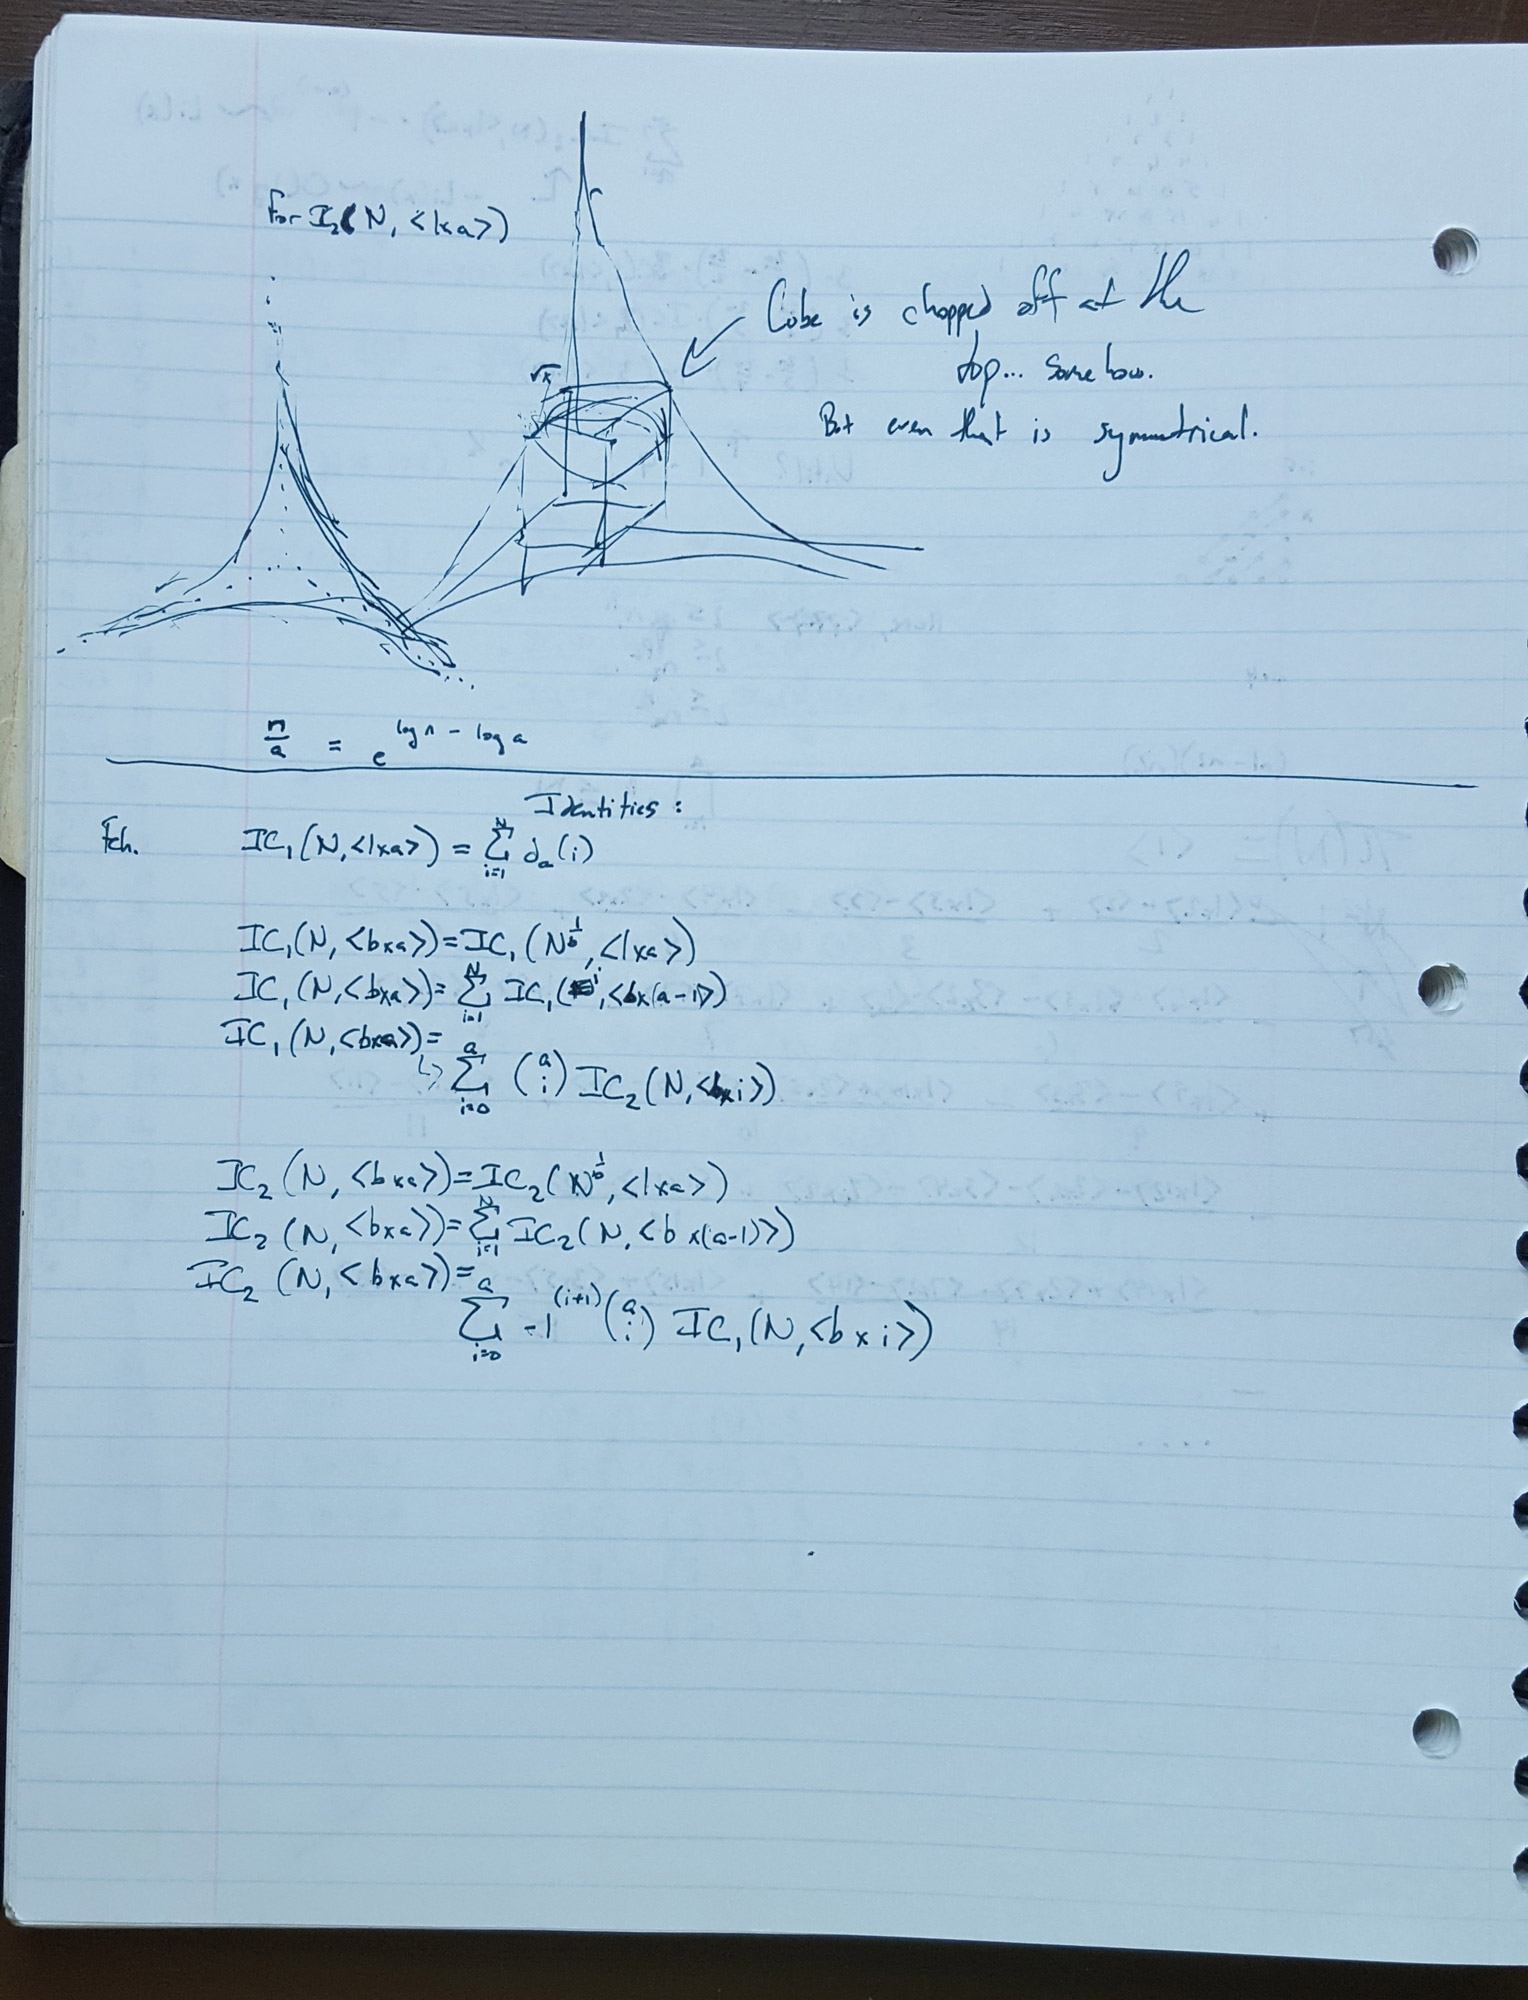 For I₂(N, <1xa>)
Cube is chopped off at the
top... somehow.
But even that is symmetrical.
√x
n/a = e^(log n - log a)
Identities:
IC₁(N,<1xa>) = Σ_{i=1}^{N} d_a(i)
IC₁(N,<bxa>)=IC₁(N^{1/b},<1xa>)
IC₁(N,<bxa>)=Σ_{i=1}^{N} IC₁(i,<bx(a-1)>)
IC₁(N,<bxa>)=
↳ Σ_{i=0}^{a} (a i) IC₂(N,<bxi>)
IC₂(N,<bxa>)=IC₂(N^{1/b},<1xa>)
IC₂(N,<bxa>)=Σ_{i=1}^{N} IC₂(N,<bx(a-1)>)
IC₂(N,<bxa>)=
Σ_{i=0}^{a} -1^{(i+1)} (a i) IC₁(N,<bxi>)